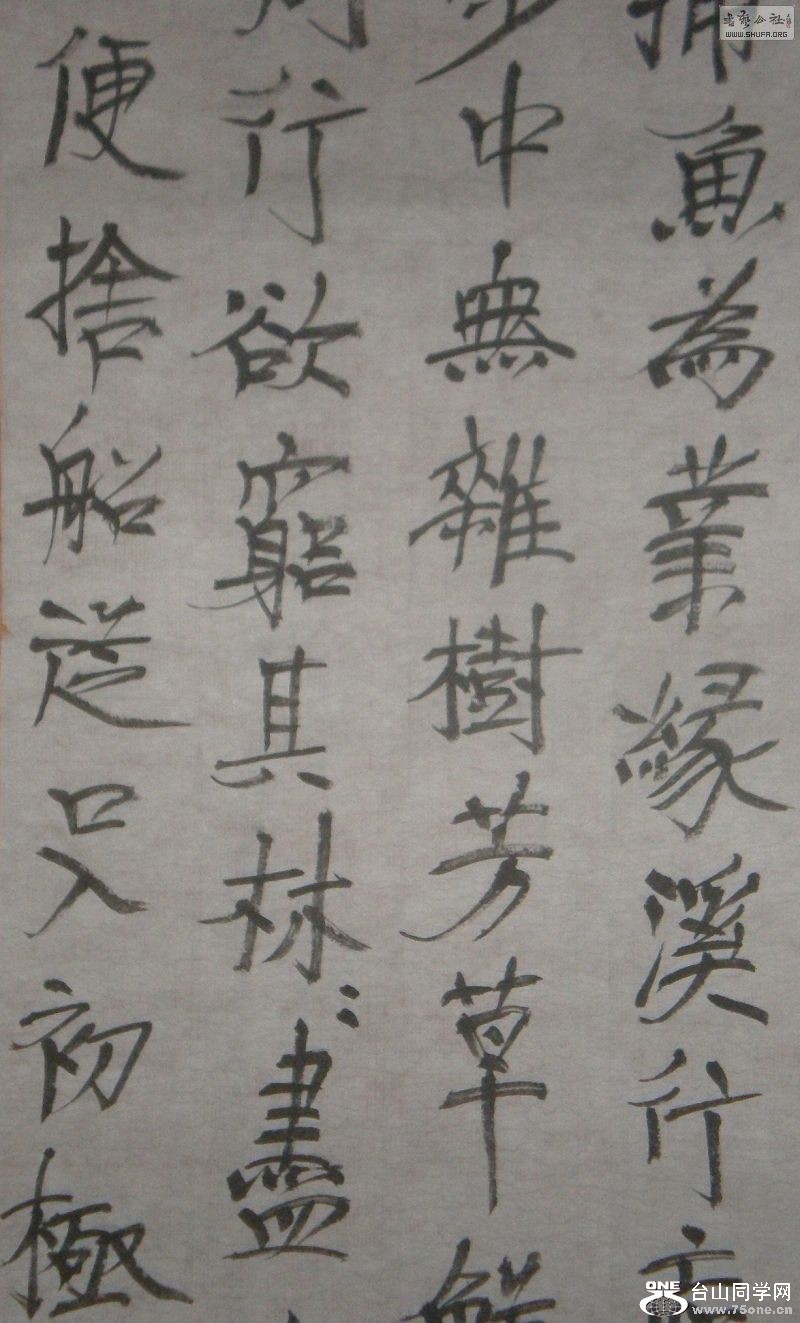 捕魚為業緣溪行忘
步中無雜樹芳草鮮
前行欲窮其林〻盡
便捨船從口入初極
書藝公社
WWW.SHUFA.ORG
ONE 台山同学网
www.75one.cn